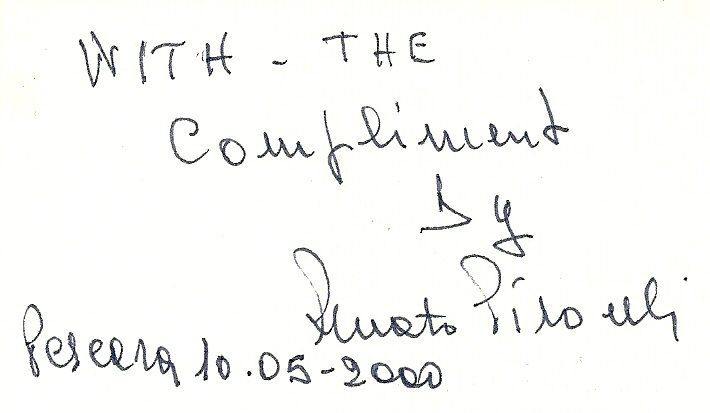 WITH - THE
Compliment
by
Renato Pirocchi
Pescara 10.05-2000